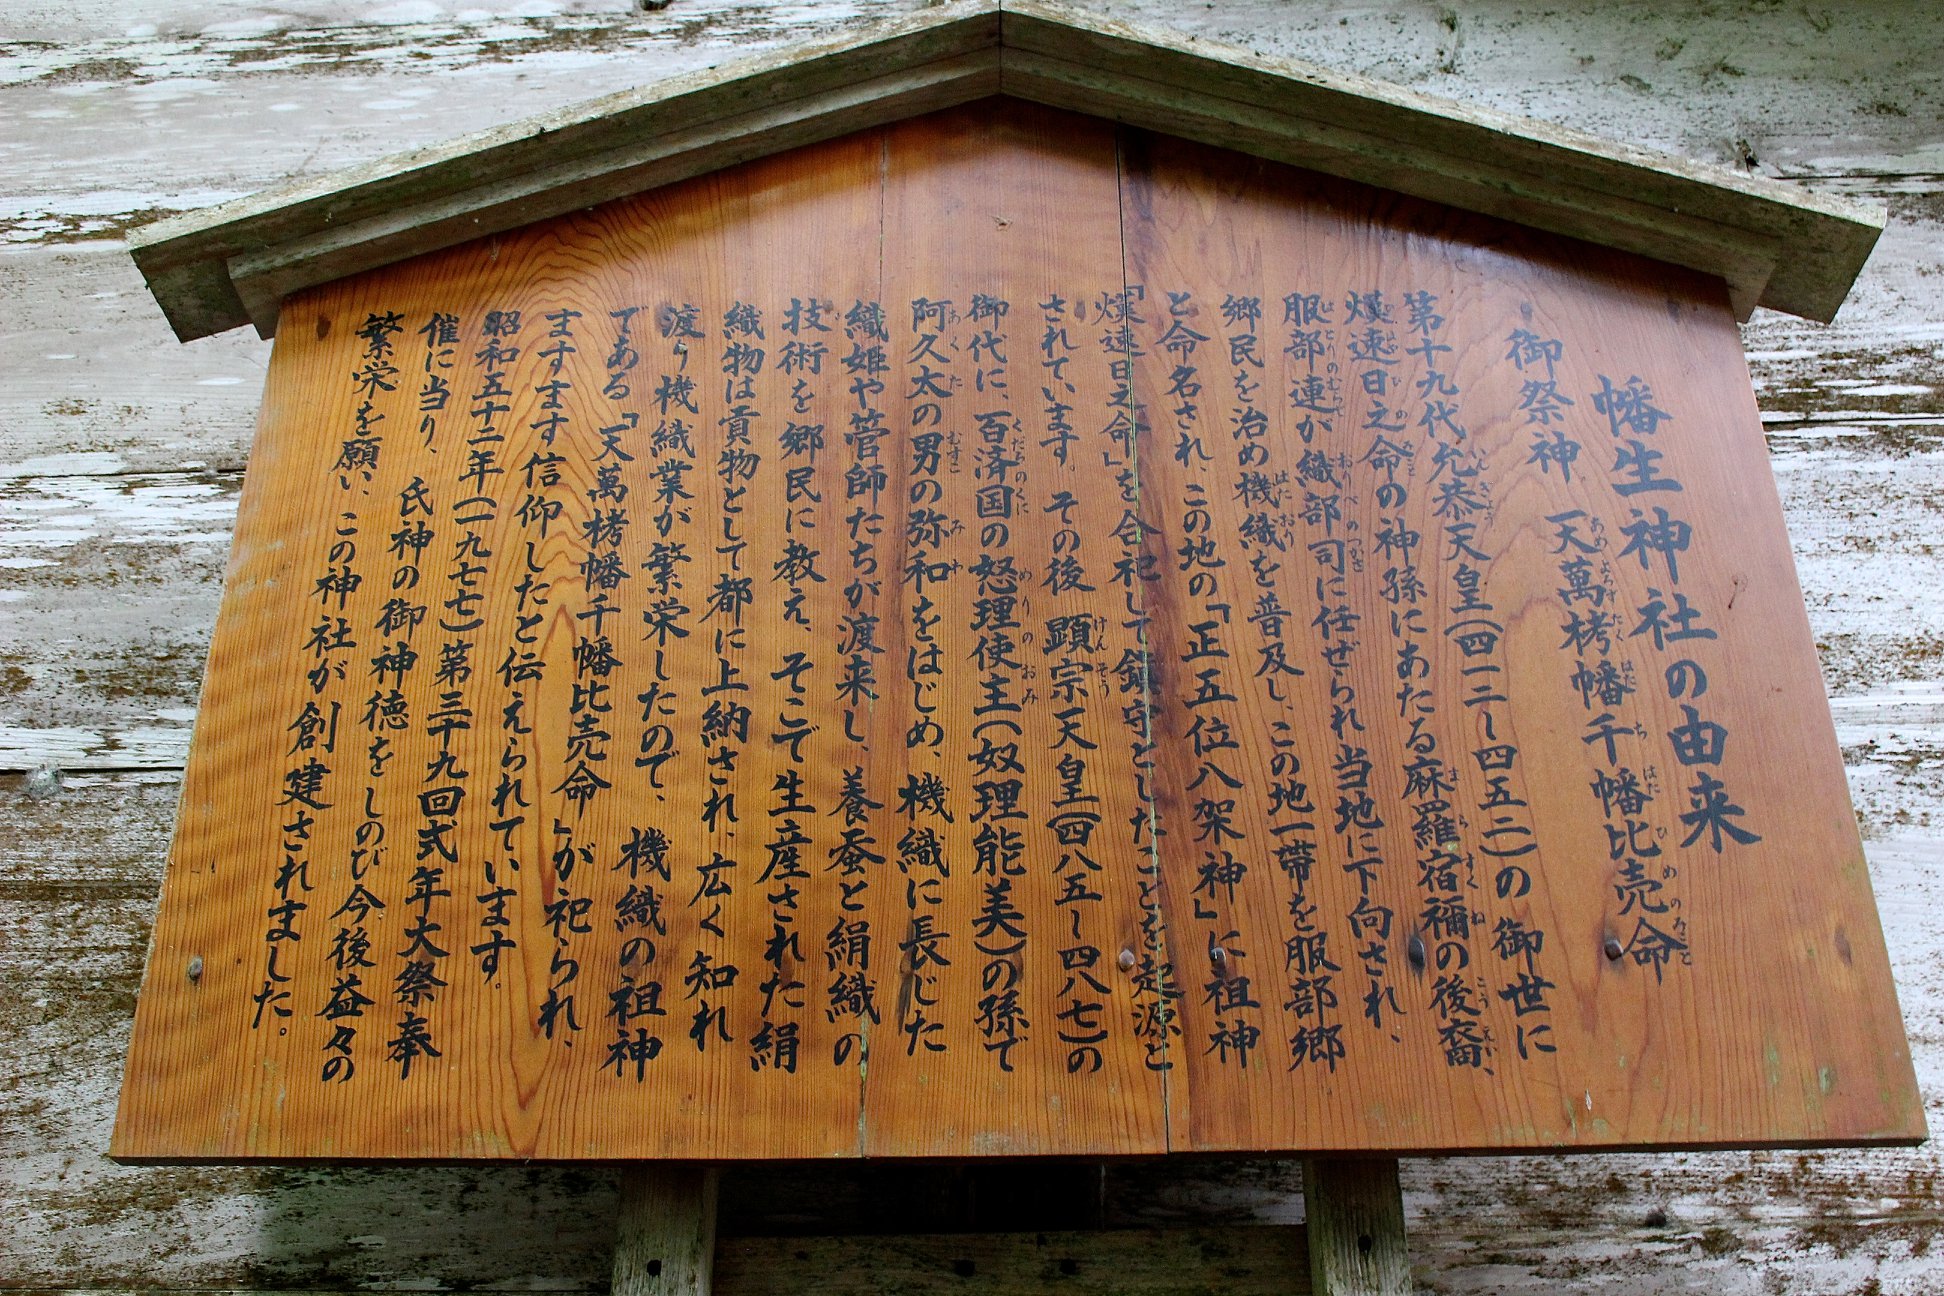 幡生神社の由来
御祭神 天萬栲幡千幡比売命
第十九代允恭天皇(四一二～四五二)の御世に
熯速日之命の神孫にあたる麻羅宿禰の後裔、
服部連が織部司に任ぜられ当地に下向され、
郷民を治め機織を普及し、この地一帯を服部郷
と命名され、この地の「正五位八架神」に祖神
「熯速日之命」を合祀して鎮守としたことを起源と
されています。その後 顕宗天皇(四八五～四八七)の
御代に、百済国の怒理使主(奴理能美)の孫で
阿久太の男の弥和をはじめ、機織に長じた
織姫や管師たちが渡来し、養蚕と絹織の
技術を郷民に教え、そこで生産された絹
織物は貢物として都に上納され、広く知れ
渡り機織業が繁栄したので、機織の祖神
である「天萬栲幡千幡比売命」が祀られ、
ますます信仰したと伝えられています。
昭和五十二年(一九七七)第三十九回式年大祭奉
催に当り、氏神の御神徳をしのび今後益々の
繁栄を願い、この神社が創建されました。